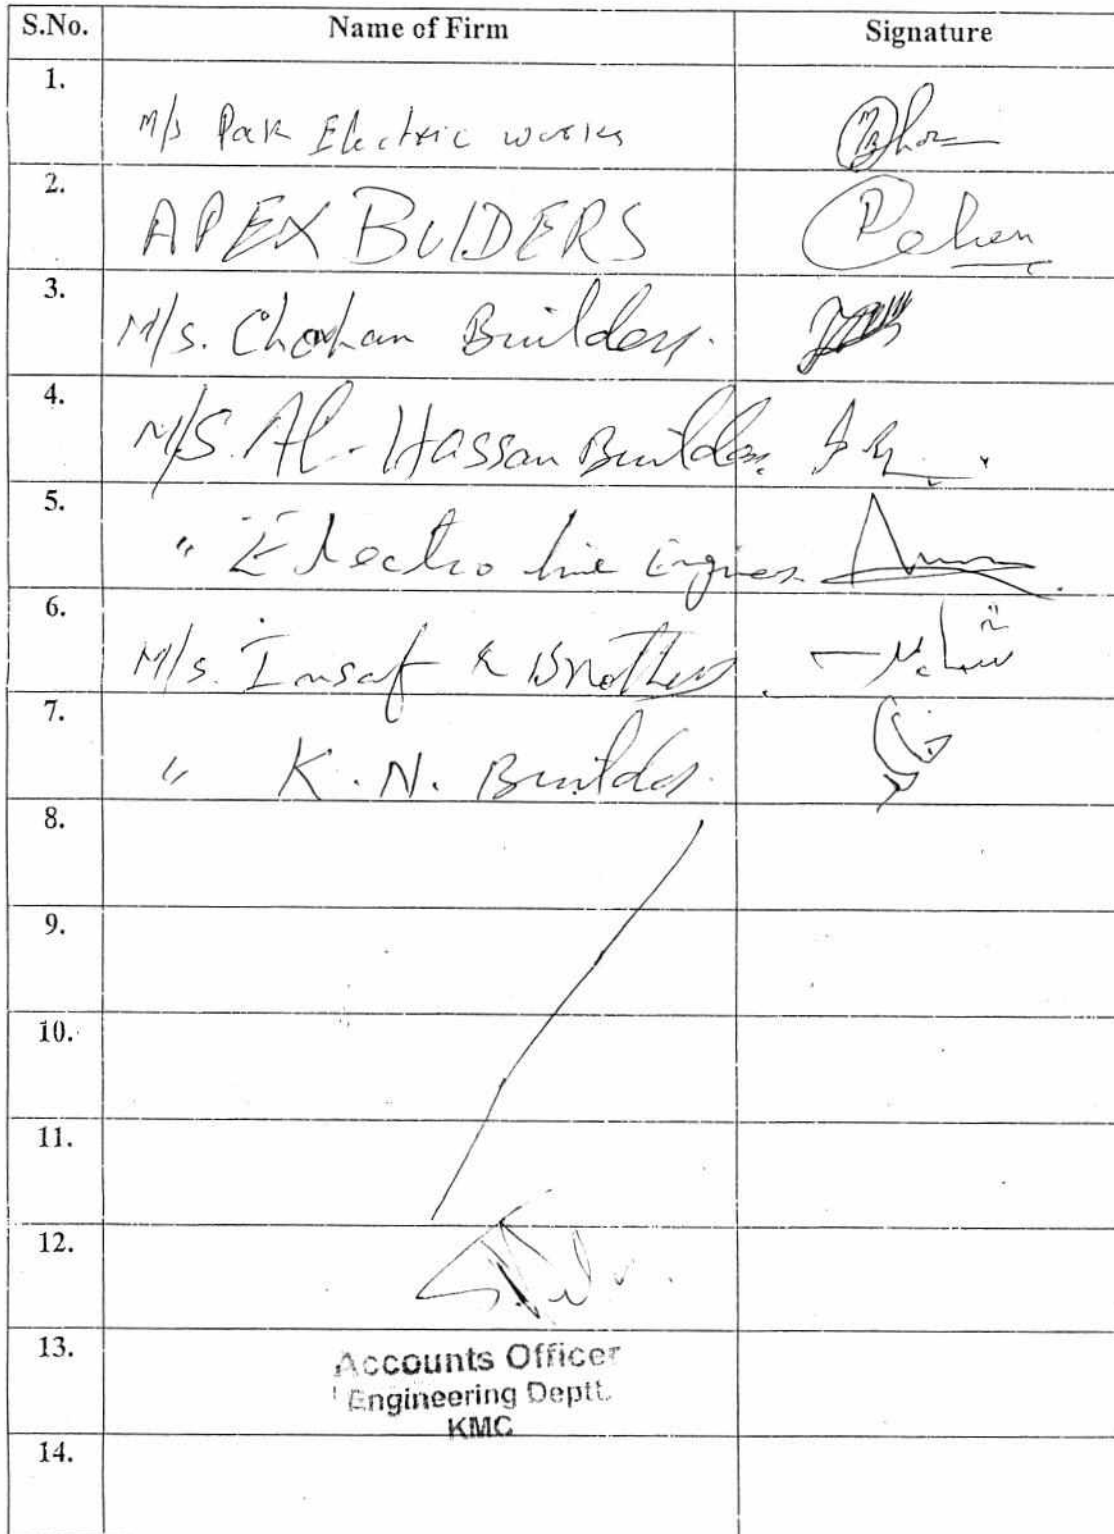 S.No. Name of Firm Signature
1. M/s Pak Electric works
2. APEX BUIDERS
3. M/s. Chohan Builders.
4. M/S. Al-Hassan Builders.
5. " Electro line Engines.
6. M/s. Insaf & Brothers.
7. " K. N. Builders.
8.
9.
10.
11.
12.
13. Accounts Officer
Engineering Deptt.
KMC
14.